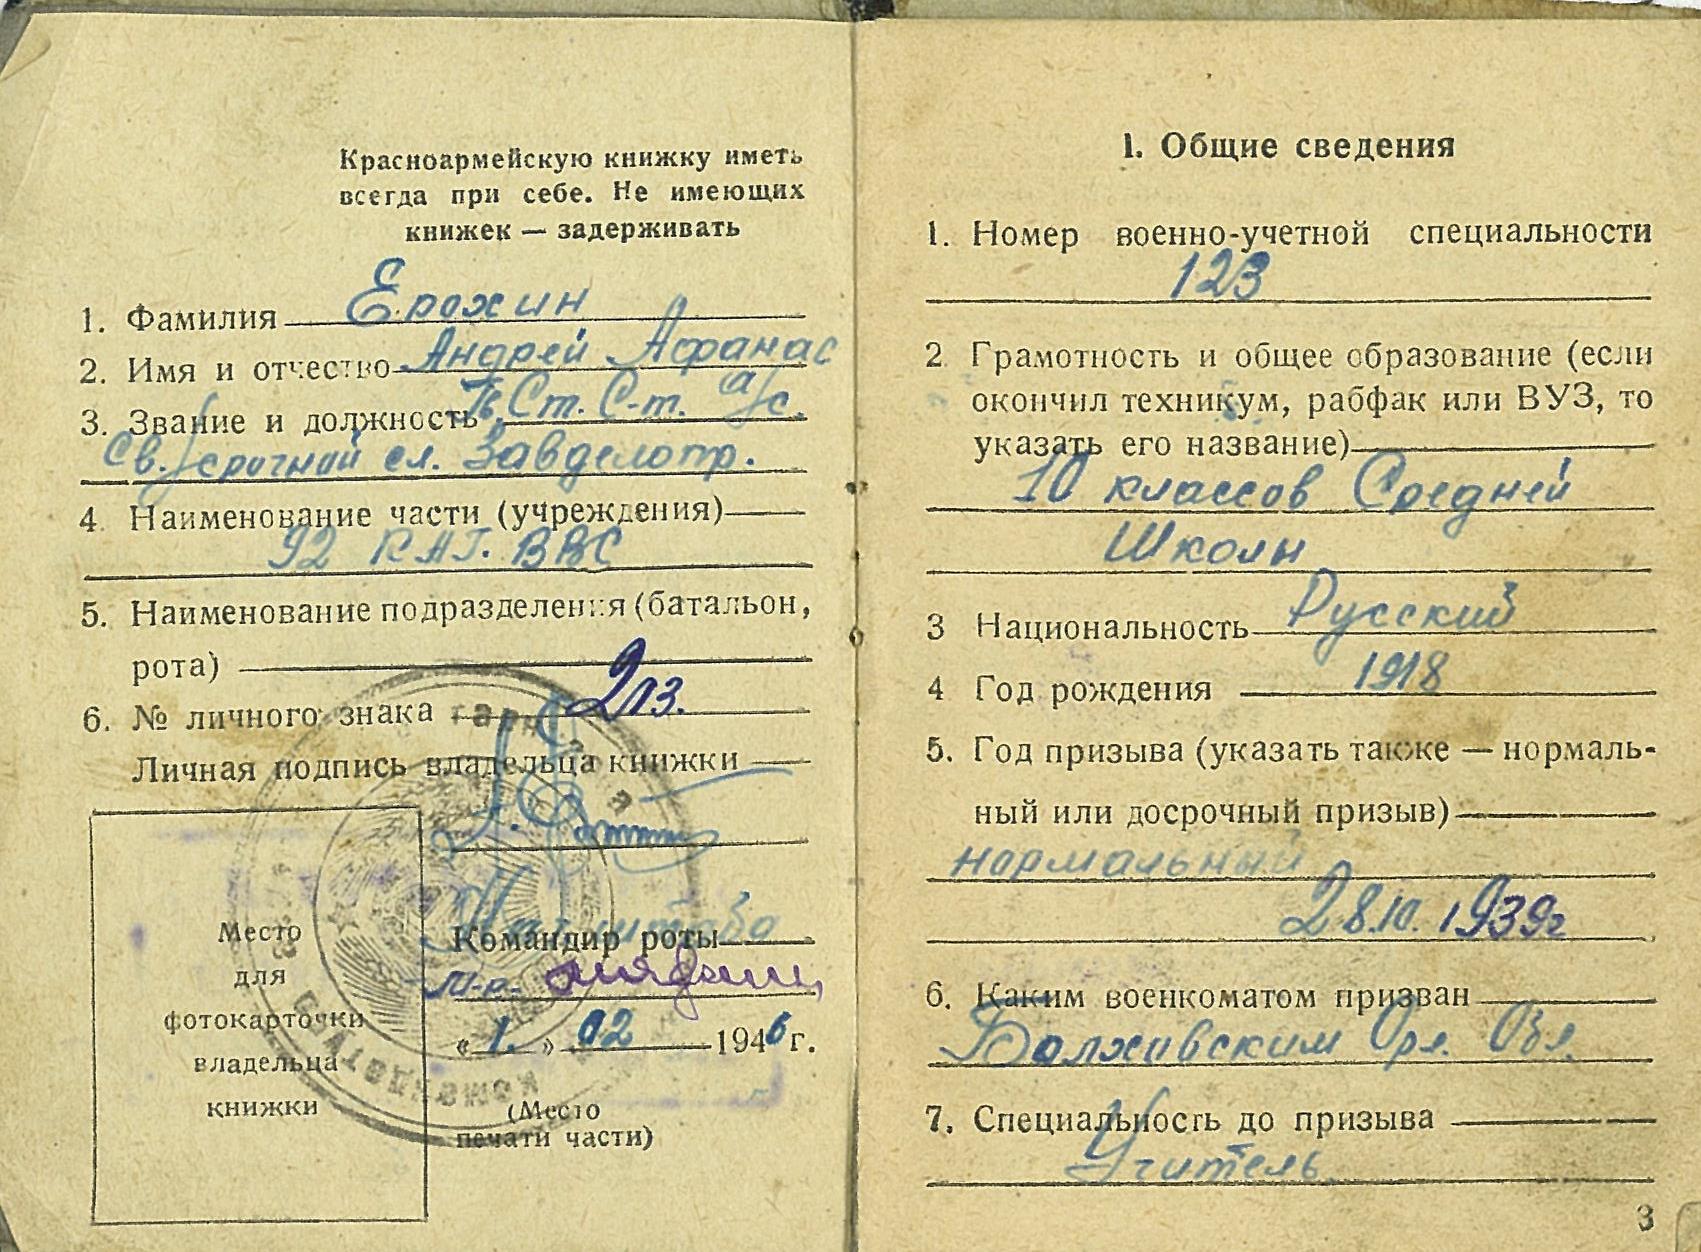 Красноармейскую книжку иметь
всегда при себе. Не имеющих
книжек — задерживать
1. Фамилия Ерохин
2. Имя и отчество Андрей Афанас
3. Звание и должность Гв. Ст. С-т. а/с.
Св./срочной сл. Завделопр.
4 Наименование части (учреждения)
92 КАГ. ВВС
5. Наименование подразделения (батальон,
рота)
6. № личного знака
Личная подпись владельца книжки
Место
для
фотокарточки
владельца
книжки
Командир роты
М-р.
«1.» 02 1946 г.
(Место
печати части)
1. Общие сведения
1. Номер военно-учетной специальности
123
2 Грамотность и общее образование (если
окончил техникум, рабфак или ВУЗ, то
указать его название)
10 классов Средней
Школы
3 Национальность Русский
4 Год рождения 1918
5. Год призыва (указать также — нормаль-
ный или досрочный призыв)
нормальный
28.10.1939г
6. Каким военкоматом призван
Болховским Орл. Обл.
7. Специальность до призыва
Учитель
3